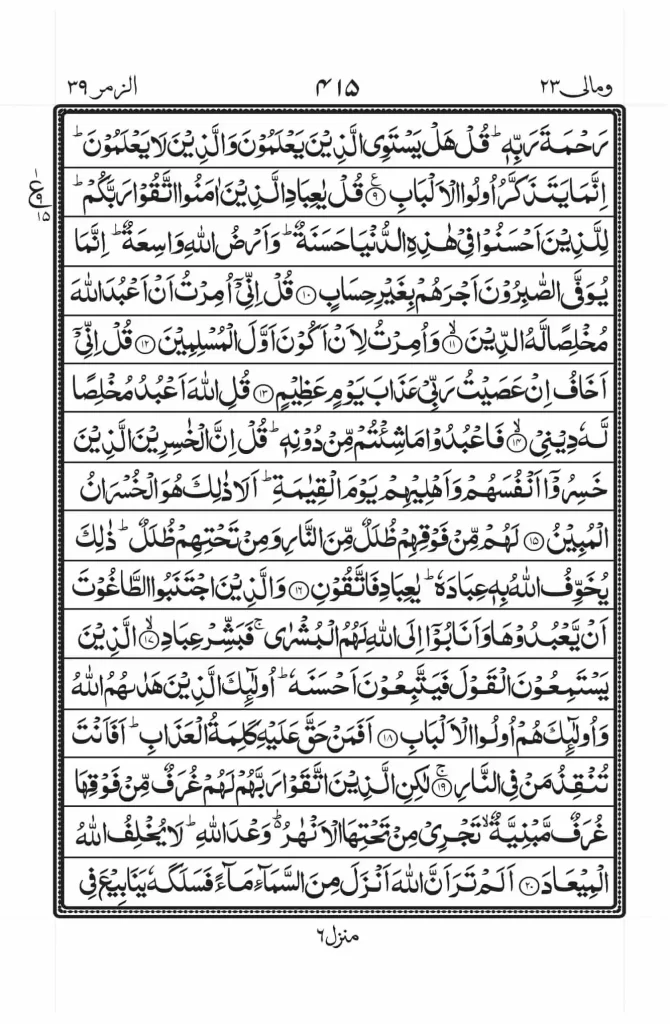 الزمر ٣٩ ٤١٥ ومالى ٢٣
رَحْمَةَ رَبِّهٖ ؕ قُلْ هَلْ يَسْتَوِى الَّذِيْنَ يَعْلَمُوْنَ وَالَّذِيْنَ لَا يَعْلَمُوْنَ ؕ
اِنَّمَا يَتَذَكَّرُ اُولُوا الْاَلْبَابِ ۹ قُلْ يٰعِبَادِ الَّذِيْنَ اٰمَنُوا اتَّقُوْا رَبَّكُمْ ؕ
ع ۹ ۱۵
لِلَّذِيْنَ اَحْسَنُوْا فِىْ هٰذِهِ الدُّنْيَا حَسَنَةٌ ؕ وَاَرْضُ اللّٰهِ وَاسِعَةٌ ؕ اِنَّمَا
يُوَفَّى الصّٰبِرُوْنَ اَجْرَهُمْ بِغَيْرِ حِسَابٍ ۱۰ قُلْ اِنِّىْۤ اُمِرْتُ اَنْ اَعْبُدَ اللّٰهَ
مُخْلِصًا لَّهُ الدِّيْنَ ۙ ۱۱ وَاُمِرْتُ لِاَنْ اَكُوْنَ اَوَّلَ الْمُسْلِمِيْنَ ۱۲ قُلْ اِنِّىْۤ
اَخَافُ اِنْ عَصَيْتُ رَبِّىْ عَذَابَ يَوْمٍ عَظِيْمٍ ۱۳ قُلِ اللّٰهَ اَعْبُدُ مُخْلِصًا
لَّهٗ دِيْنِىْ ۙ ۱۴ فَاعْبُدُوْا مَا شِئْتُمْ مِّنْ دُوْنِهٖ ؕ قُلْ اِنَّ الْخٰسِرِيْنَ الَّذِيْنَ
خَسِرُوْۤا اَنْفُسَهُمْ وَاَهْلِيْهِمْ يَوْمَ الْقِيٰمَةِ ؕ اَلَا ذٰلِكَ هُوَ الْخُسْرَانُ
الْمُبِيْنُ ۱۵ لَهُمْ مِّنْ فَوْقِهِمْ ظُلَلٌ مِّنَ النَّارِ وَمِنْ تَحْتِهِمْ ظُلَلٌ ؕ ذٰلِكَ
يُخَوِّفُ اللّٰهُ بِهٖ عِبَادَهٗ ؕ يٰعِبَادِ فَاتَّقُوْنِ ۱۶ وَالَّذِيْنَ اجْتَنَبُوا الطَّاغُوْتَ
اَنْ يَّعْبُدُوْهَا وَاَنَابُوْۤا اِلَى اللّٰهِ لَهُمُ الْبُشْرٰى ۚ فَبَشِّرْ عِبَادِ ۙ ۱۷ الَّذِيْنَ
يَسْتَمِعُوْنَ الْقَوْلَ فَيَتَّبِعُوْنَ اَحْسَنَهٗ ؕ اُولٰٓئِكَ الَّذِيْنَ هَدٰىهُمُ اللّٰهُ
وَاُولٰٓئِكَ هُمْ اُولُوا الْاَلْبَابِ ۱۸ اَفَمَنْ حَقَّ عَلَيْهِ كَلِمَةُ الْعَذَابِ ؕ اَفَاَنْتَ
تُنْقِذُ مَنْ فِى النَّارِ ۚ ۱۹ لٰكِنِ الَّذِيْنَ اتَّقَوْا رَبَّهُمْ لَهُمْ غُرَفٌ مِّنْ فَوْقِهَا
غُرَفٌ مَّبْنِيَّةٌ ۙ تَجْرِىْ مِنْ تَحْتِهَا الْاَنْهٰرُ ۬ؕ وَعْدَ اللّٰهِ ؕ لَا يُخْلِفُ اللّٰهُ
الْمِيْعَادَ ۲۰ اَلَمْ تَرَ اَنَّ اللّٰهَ اَنْزَلَ مِنَ السَّمَآءِ مَآءً فَسَلَكَهٗ يَنَابِيْعَ فِى
منزل ٦